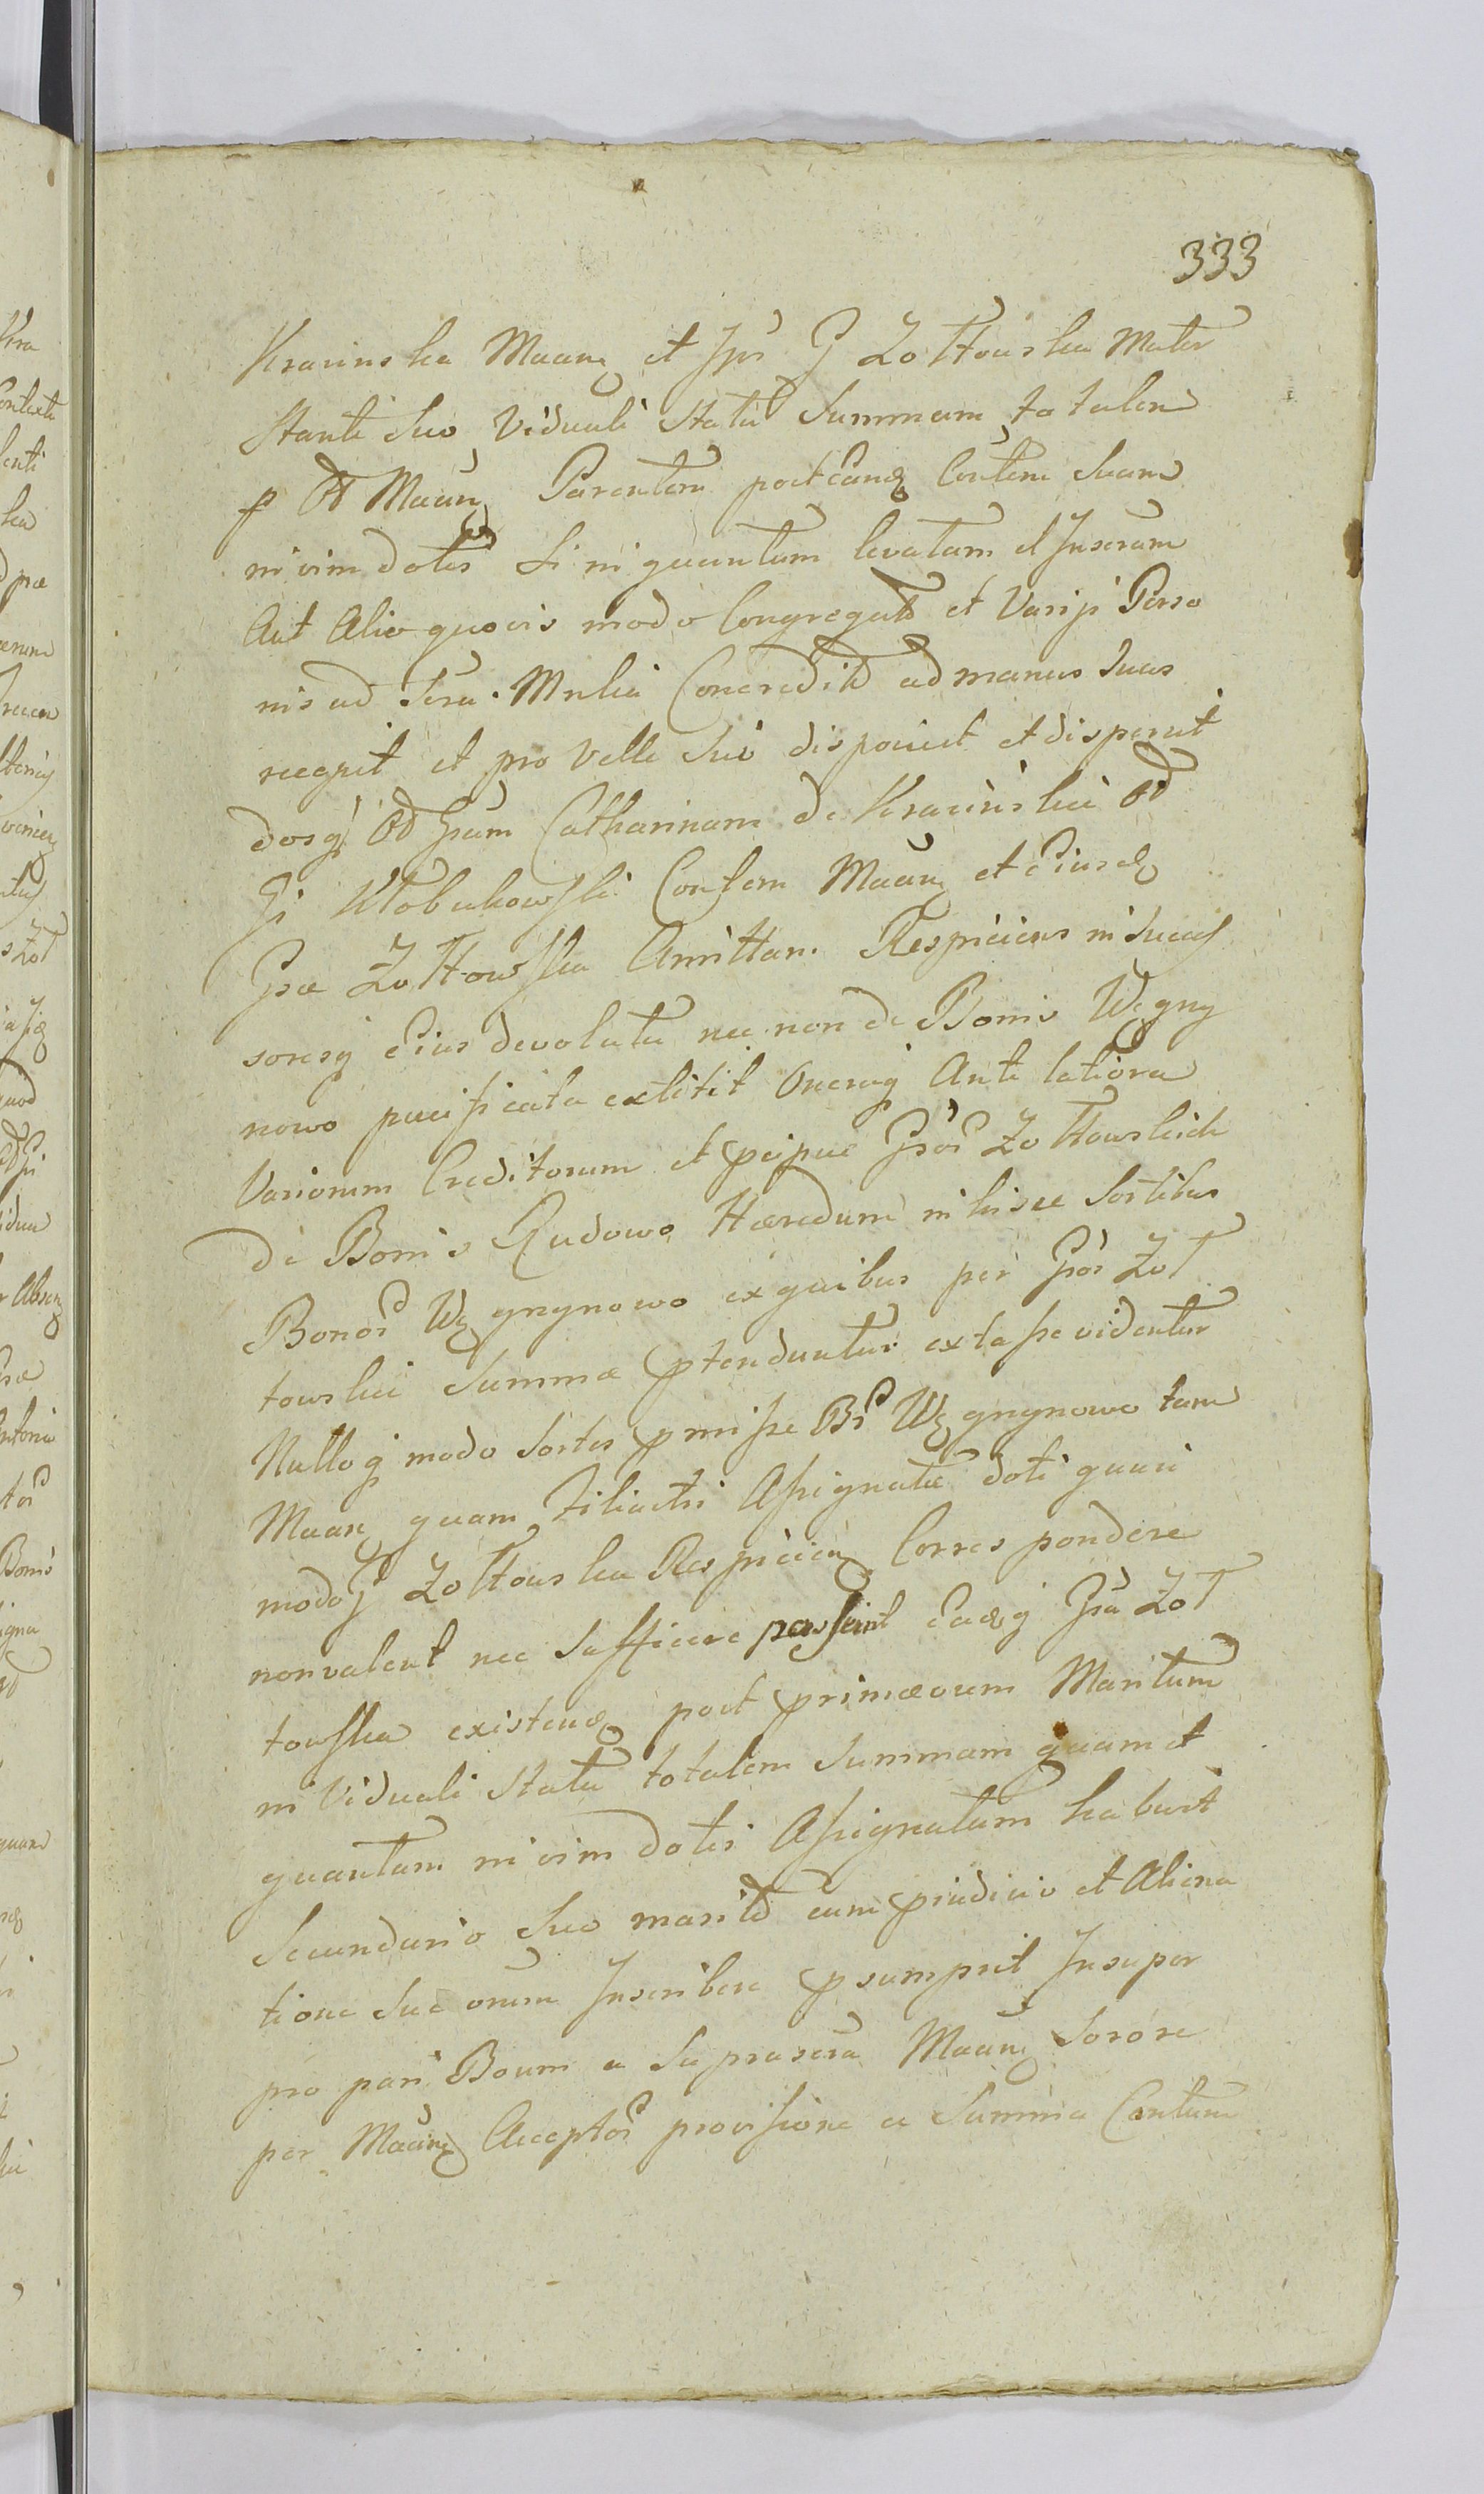 333
Kracinska Maan et Ips G Zołtowska Mater
Stante Suo Viduali Statu Summam totalem
p Maan Parentem post Contem Suam
in vim dotis Si in quantum levatam et Inscram
Aut Alio quovis modo Congregatt et Varys Perso
nis ad Scra Mnlia Concredit ad manus Suas
recepit et pro Velle Sui disponit et disponit
dosq Olim Gsam Catharinam de Kracinskie
Gi Kłobukowski Consem Maan et Eiusd
Gsae Zołtowska Amittam Respiciens in Succes
soresq Eius devoluta nec non de Bonis Węgny
nowo pacificata extitit Oneraq Ante latiora
Variorum Creditorum et pcipue Gsor Zołtowskich
de Bonis Rudowo Haeredum in hisce Sortibus
Bonor Węgnynowo ex quibus per Gsos Zoł
towskie Summae ptenduntur extasse videntur
Nulloq modo Sortes pmisse Br Węgnynowo tam
Maan quam filiastri Assignatae doti quasi
modo G Zołtowska Respicien Correspondere
non valent nec Sufficere possint Eadq Gsa Zoł
towska existend post primaevum Maritum
in Viduali Statu totalem Summam quam et
quantum in vim dotis Assignatum habuit
Secundario Suo marito cum pjudicio et Aliena
tione Sucorum Inscribere psumpsit Insuper
pro pari Boum a Suprascra Maan Sorore
per Maan Acceptor provisione a Summa Centum